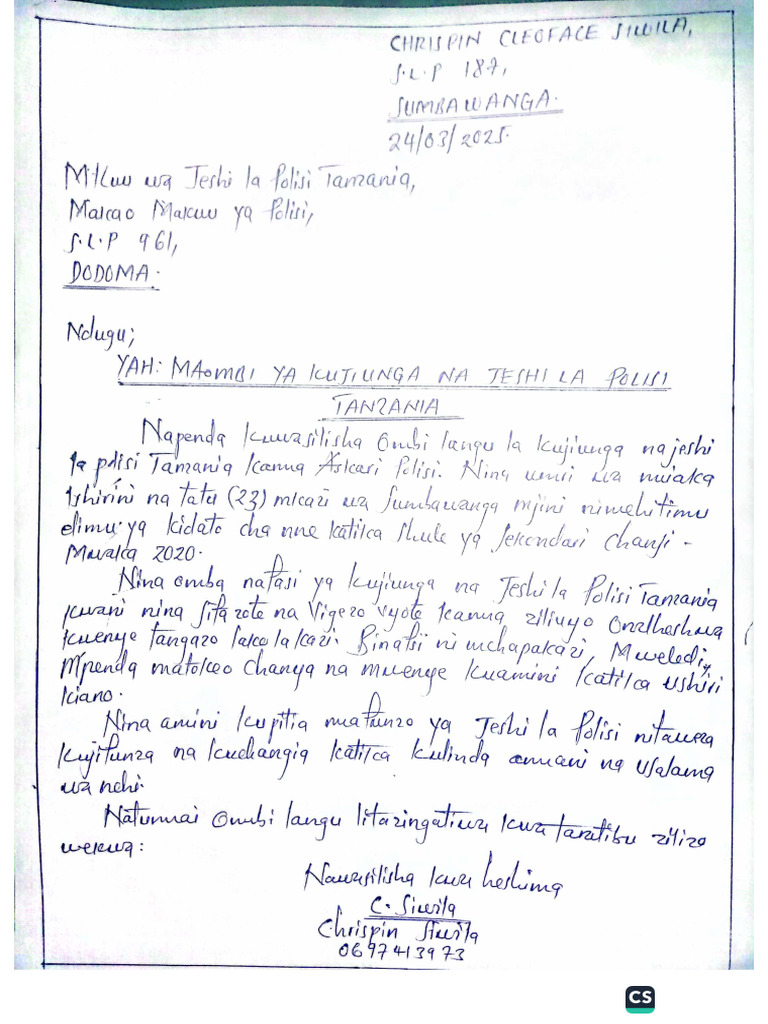 CHRISPIN CLEOFACE SIWILA,
S.L.P 187,
SUMBAWANGA.
24/03/2025.
Mkuu wa Jeshi la Polisi Tanzania,
Makao Makuu ya Polisi,
S.L.P 961,
DODOMA.
Ndugu;
YAH: MAOMBI YA KUJIUNGA NA JESHI LA POLISI
TANZANIA
Napenda Kuwasilisha Ombi langu la kujiunga na jeshi
la polisi Tanzania kama Askari Polisi. Nina umri wa miaka
Ishirini na tatu (23) mkazi wa Sumbawanga mjini nimehitimu
elimu ya kidato cha nne katika Shule ya Sekondari Chanji -
Mwaka 2020.
Nina omba nafasi ya kujiunga na Jeshi la Polisi Tanzania
kwani nina Sifa zote na Vigezo vyote kama ziliuyo Onzlheshwa
kwenye tangazo lako la kazi. Binafsi ni mchapakazi, Mweledi,
Mpenda matokeo Chanya na mwenye kuamini katika ushiri
kiano.
Nina amini kupitia mafunzo ya Jeshi la Polisi nitaweza
kujifunza na kuchangia katika kulinda amani na Usalama
wa nchi.
Natumai Ombi langu litazingatiwa kwa taratibu zilizo
wekwa:
Nawasilisha kwa heshima
C. Siwila
Chrispin Siwila
0697413973
CS